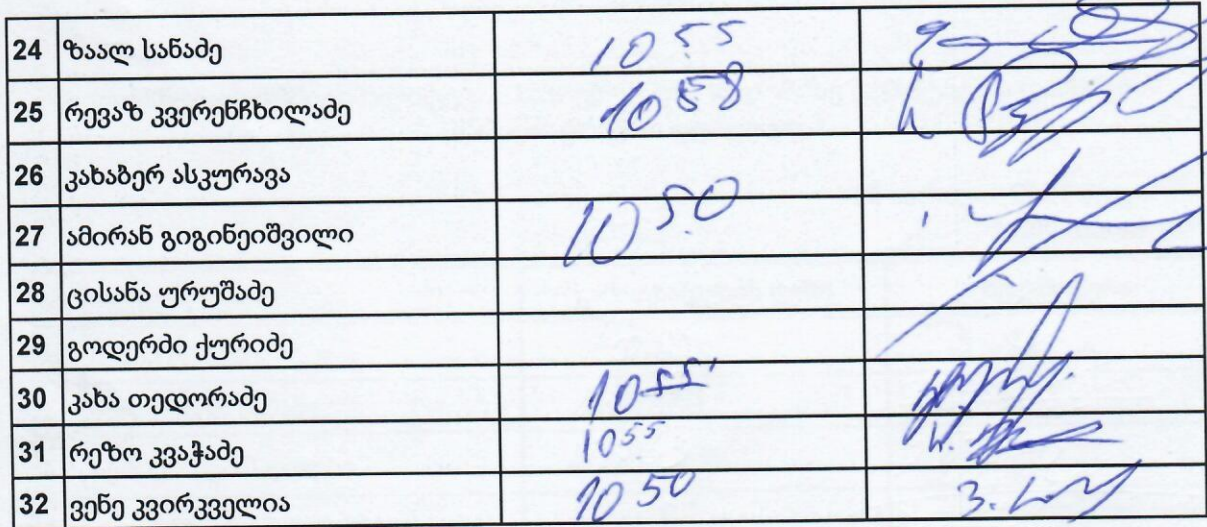 24 ზაალ სანაძე 10 55
25 რევაზ კვერენჩხილაძე 10 58
26 კახაბერ ასკურავა
27 ამირან გიგინეიშვილი 10 50
28 ცისანა ურუშაძე
29 გოდერძი ქურიძე
30 კახა თედორაძე 10 55
31 რეზო კვაჭაძე 10 55
32 ვენე კვირკველია 10 50